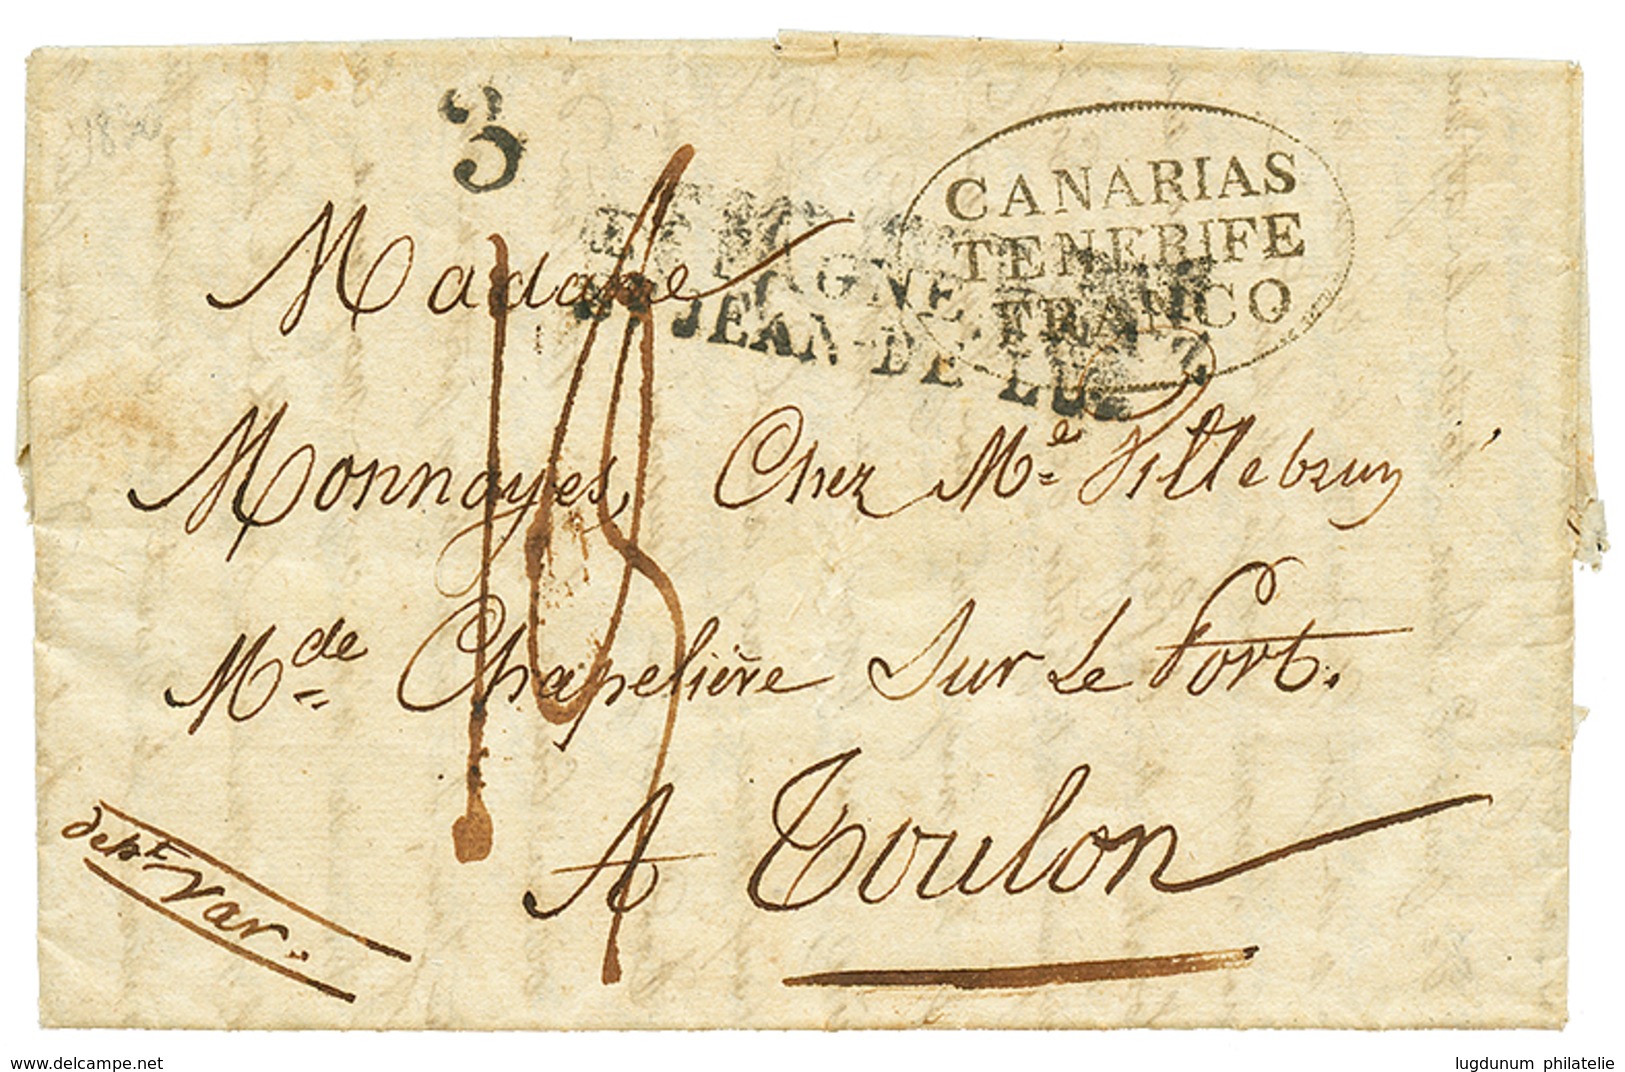 3
CANARIAS
TENERIFE
FRANCO
ESPAGNE
ST JEAN-DE-LUZ
18
Madame
Monnoyes, Chez Me. Villebrun
Mde Chapelière Sur Le Port.
A Toulon
dept Var.
www.delcampe.net
lugdunum philatelie